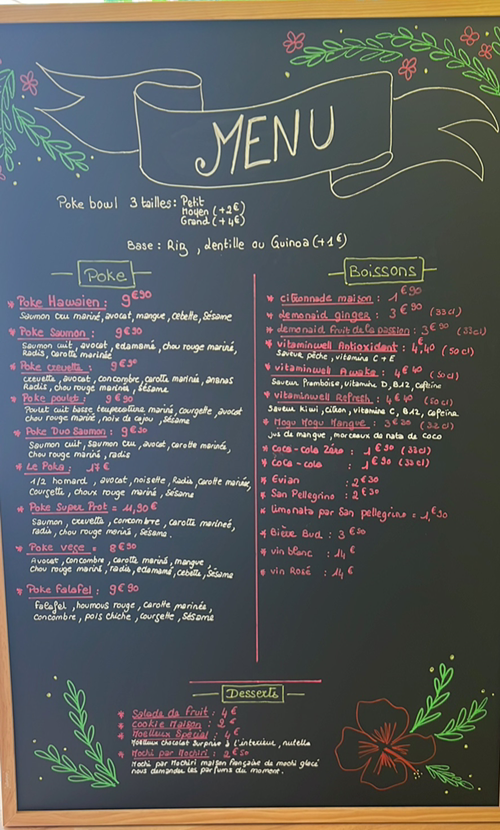 MENU
Poke bowl 3 tailles: Petit
Moyen (+2€)
Grand (+4€)
Base: Riz, lentille ou Quinoa (+1€)
Poke
* Poke Hawaien: 9€90
Saumon cru mariné, avocat, mangue, cebette, Sésame
* Poke Saumon: 9€90
Saumon cuit, avocat, edamamé, chou rouge mariné,
Radis, carotte marinée
* Poke crevette: 9€90
crevette, avocat, concombre, carotte mariné, ananas
Radis, chou rouge mariné, Sésame
* Poke poulet: 9€90
Poulet cuit basse température mariné, courgette, avocat
chou rouge mariné, noix de cajou, Sésame
* Poke Duo Saumon: 9€90
Saumon cuit, saumon cru, avocat, carotte marinée,
chou rouge mariné, radis
* Le Poka: 17€
1/2 homard, avocat, noisette, Radis, carotte marinée,
Courgette, choux rouge mariné, Sésame
* Poke Super Prot = 11,90€
Saumon, crevette, concombre, carotte marineé,
radis, chou rouge mariné, Sésame.
* Poke vege = 8€90
Avocat, concombre, carotte mariné, mangue,
chou rouge mariné, radis, edamamé, cebette, Sésame
* Poke Falafel: 9€90
Falafel, houmous rouge, carotte marinée,
concombre, pois chiche, courgette, Sésame
Boissons
* citronnade maison: 1€90
* lemonaid ginger: 3€90 (33cl)
* lemonaid fruit de la passion: 3€90 (33cl)
* vitaminwell Antioxidant: 4€,40 (50cl)
Saveur pêche, vitamine C + E
* vitaminwell Awake: 4€40 (50cl)
Saveur Framboise, vitamine D, B12, caféine
* vitaminwell Refresh: 4€40 (50cl)
Saveur kiwi, citron, vitamine C, B12, caféine
* Mogu Mogu Mangue: 3€20 (32cl)
jus de mangue, morceaux de nata de coco
* Coca-cola Zéro: 1€90 (33cl)
* Coca-cola: 1€90 (33cl)
* Evian: 2€30
* San Pellegrino: 2€30
* limonata par San pellegrino = 1,€90
* Bière Bud: 3€50
* vin blanc: 14€
* vin Rosé: 14€
Desserts
* Salade de fruit: 4€
* Cookie Maison: 2€
* Moelleux Spécial: 4€
Moelleux chocolat Surprise à l'interieur, nutella
* Mochi par Mochiri: 2€50
Mochi par Mochiri maison française de mochi glacé
nous demander les parfums du moment.